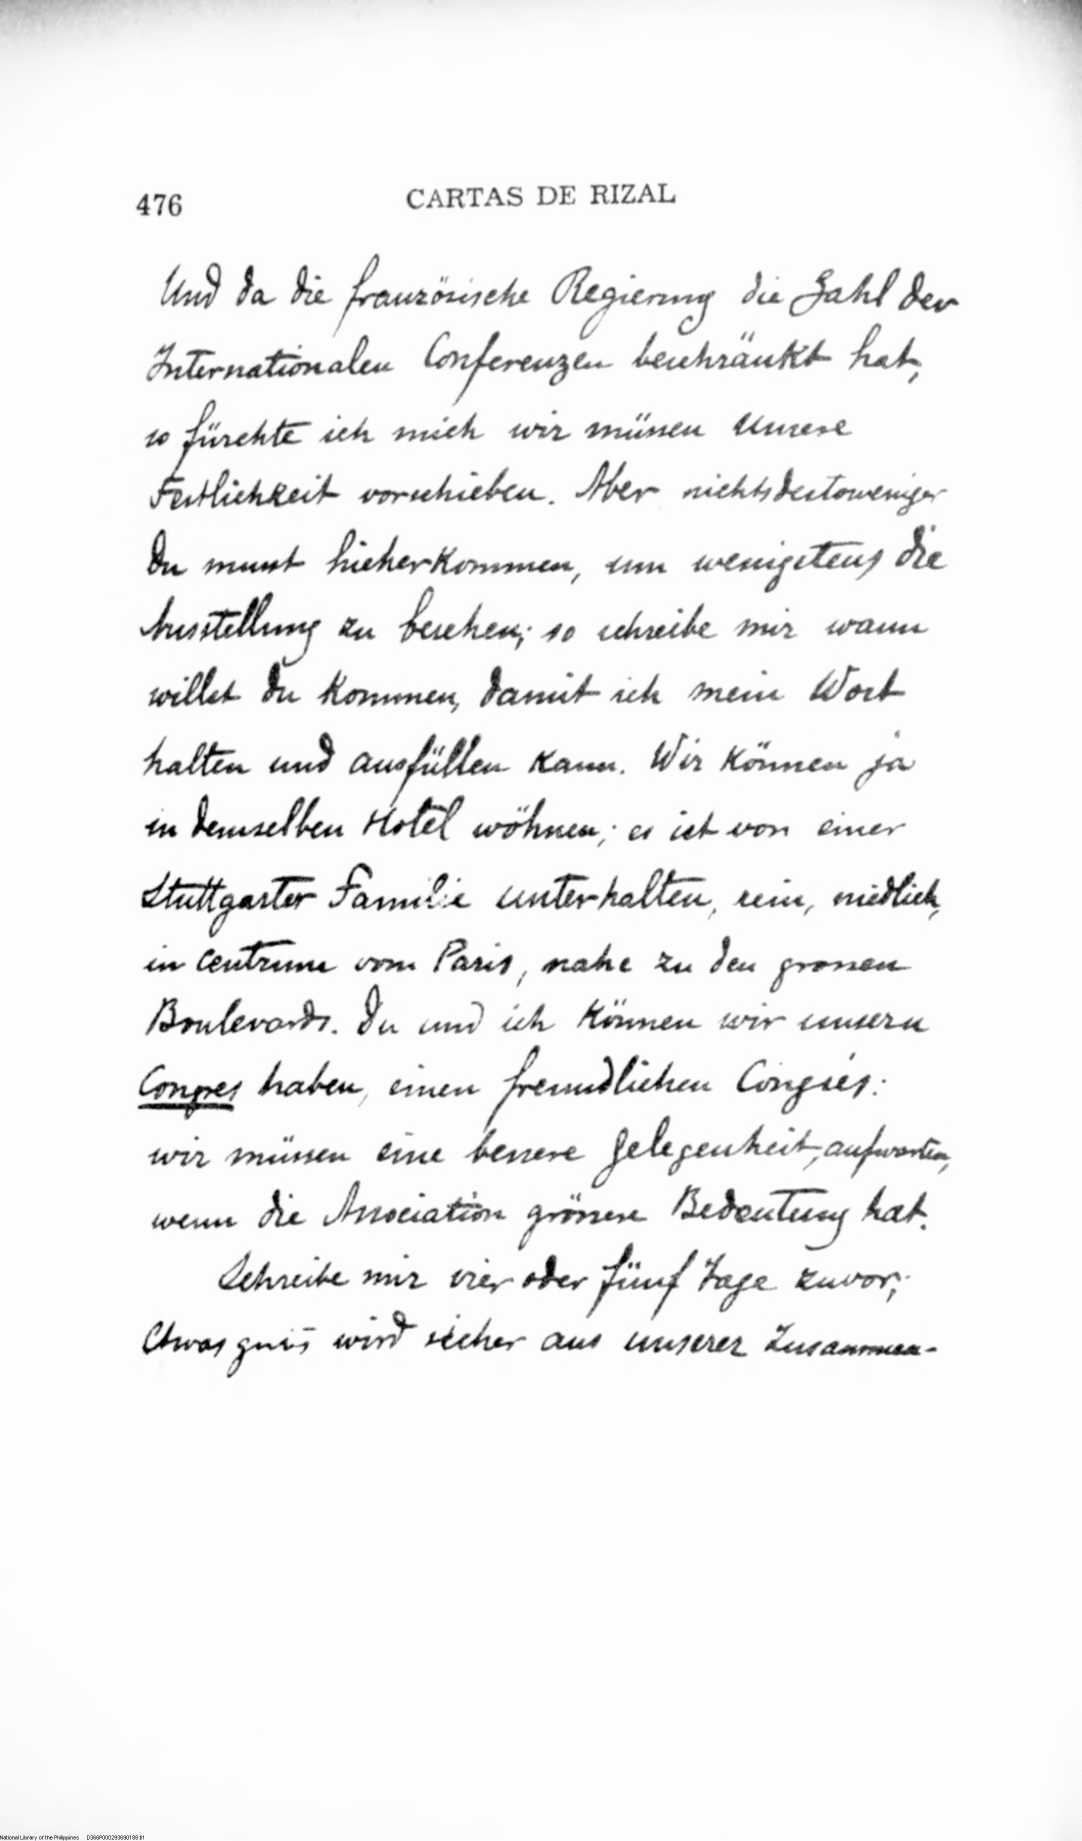 476
CARTAS DE RIZAL
Und da die französische Regierung die Zahl der
Internationalen Conferenzen beschränkt hat,
so fürchte ich mich wir müssen unsere
Festlichkeit vorschieben. Aber nichtsdestoweniger
du musst hieherkommen, um wenigstens die
Ausstellung zu besehen; so schreibe mir wann
willst du kommen, damit ich mein Wort
halten und ausfüllen kann. Wir können ja
in demselben Hotel wöhnen; es ist von einer
Stuttgarter Familie unterhalten, rein, niedlich,
in centrum vom Paris, nahe zu den grossen
Boulevards. Du und ich können wir unsern
Congres haben, einen freundlichen Congrés:
wir müssen eine bessere Gelegenheit, aufwarten,
wenn die Association grössere Bedeutung hat.
Schreibe mir vier oder fünf Tage zuvor;
Etwas wird sicher aus unserer Zusammen-
National Library of the Philippines